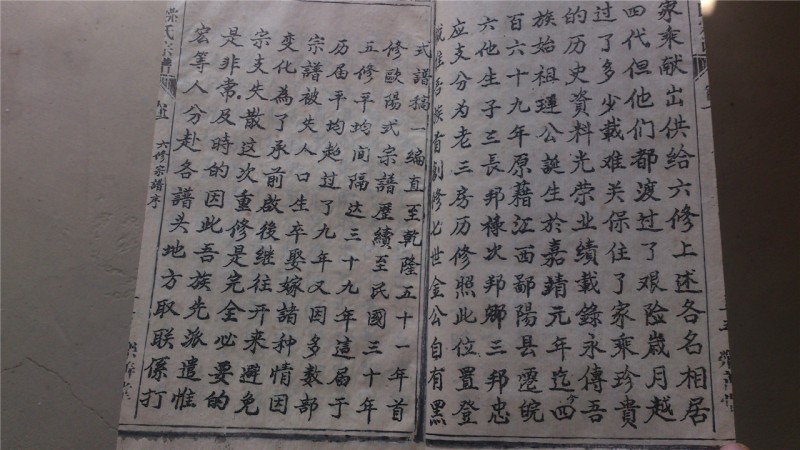 家乘献出供给六修上述各名相居
四代但他们都渡过了艰险岁月越
过了多少载难关保住了家乘珍贵
的历史资料光荣业績載錄永傳吾
族始祖璉公誕生於嘉靖元年迄今四
百六十九年原藉江西鄱陽县遷皖
六他生子三長邦棟次邦卿三邦忠
应支分为老三房历修照此位置登
族首創修七世金公自有黑
式譜稿一編直至乾隆五十一年首
修歐陽式宗譜歷續至民國三十年
五修平均间隔达三十九年這届于
历届平均超过了九年又因多数部
宗譜被失人口生卒娶嫁諸种情因
变化為了承前啟後继往开来避免
宗支失散这次重修是完全必要的
是非常及時的因此吾族先派遣惟
宏等人分赴各譜头地方取联係打
氏宗譜
六修宗譜序